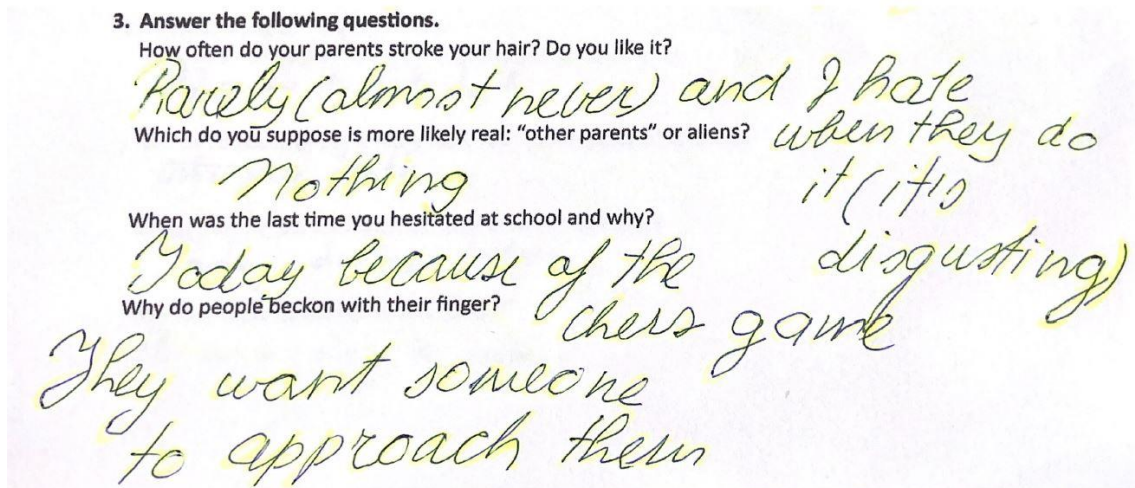 3. Answer the following questions.
How often do your parents stroke your hair? Do you like it?
Rarely (almost never) and I hate
when they do
it (it's
disgusting)
Which do you suppose is more likely real: “other parents” or aliens?
Nothing
When was the last time you hesitated at school and why?
Today because of the
chess game
Why do people beckon with their finger?
They want someone
to approach them